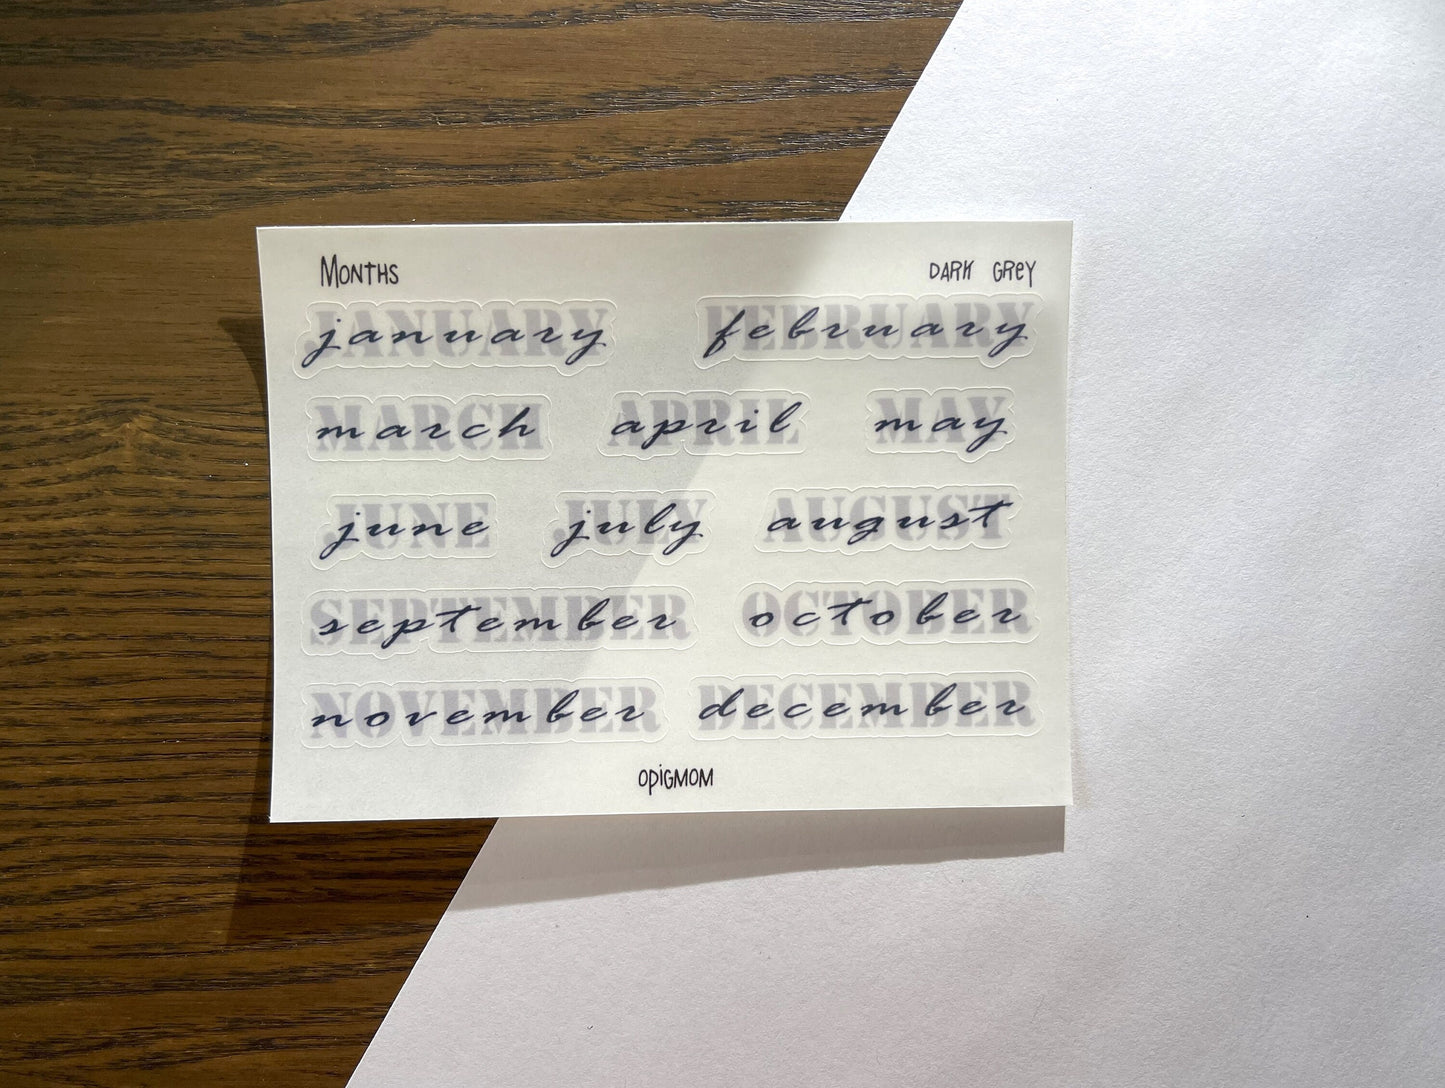 MONTHS DARK GREY
JANUARY january FEBRUARY february
MARCH march APRIL april MAY may
JUNE june JULY july AUGUST august
SEPTEMBER september OCTOBER october
NOVEMBER november DECEMBER december
OPIGMOM